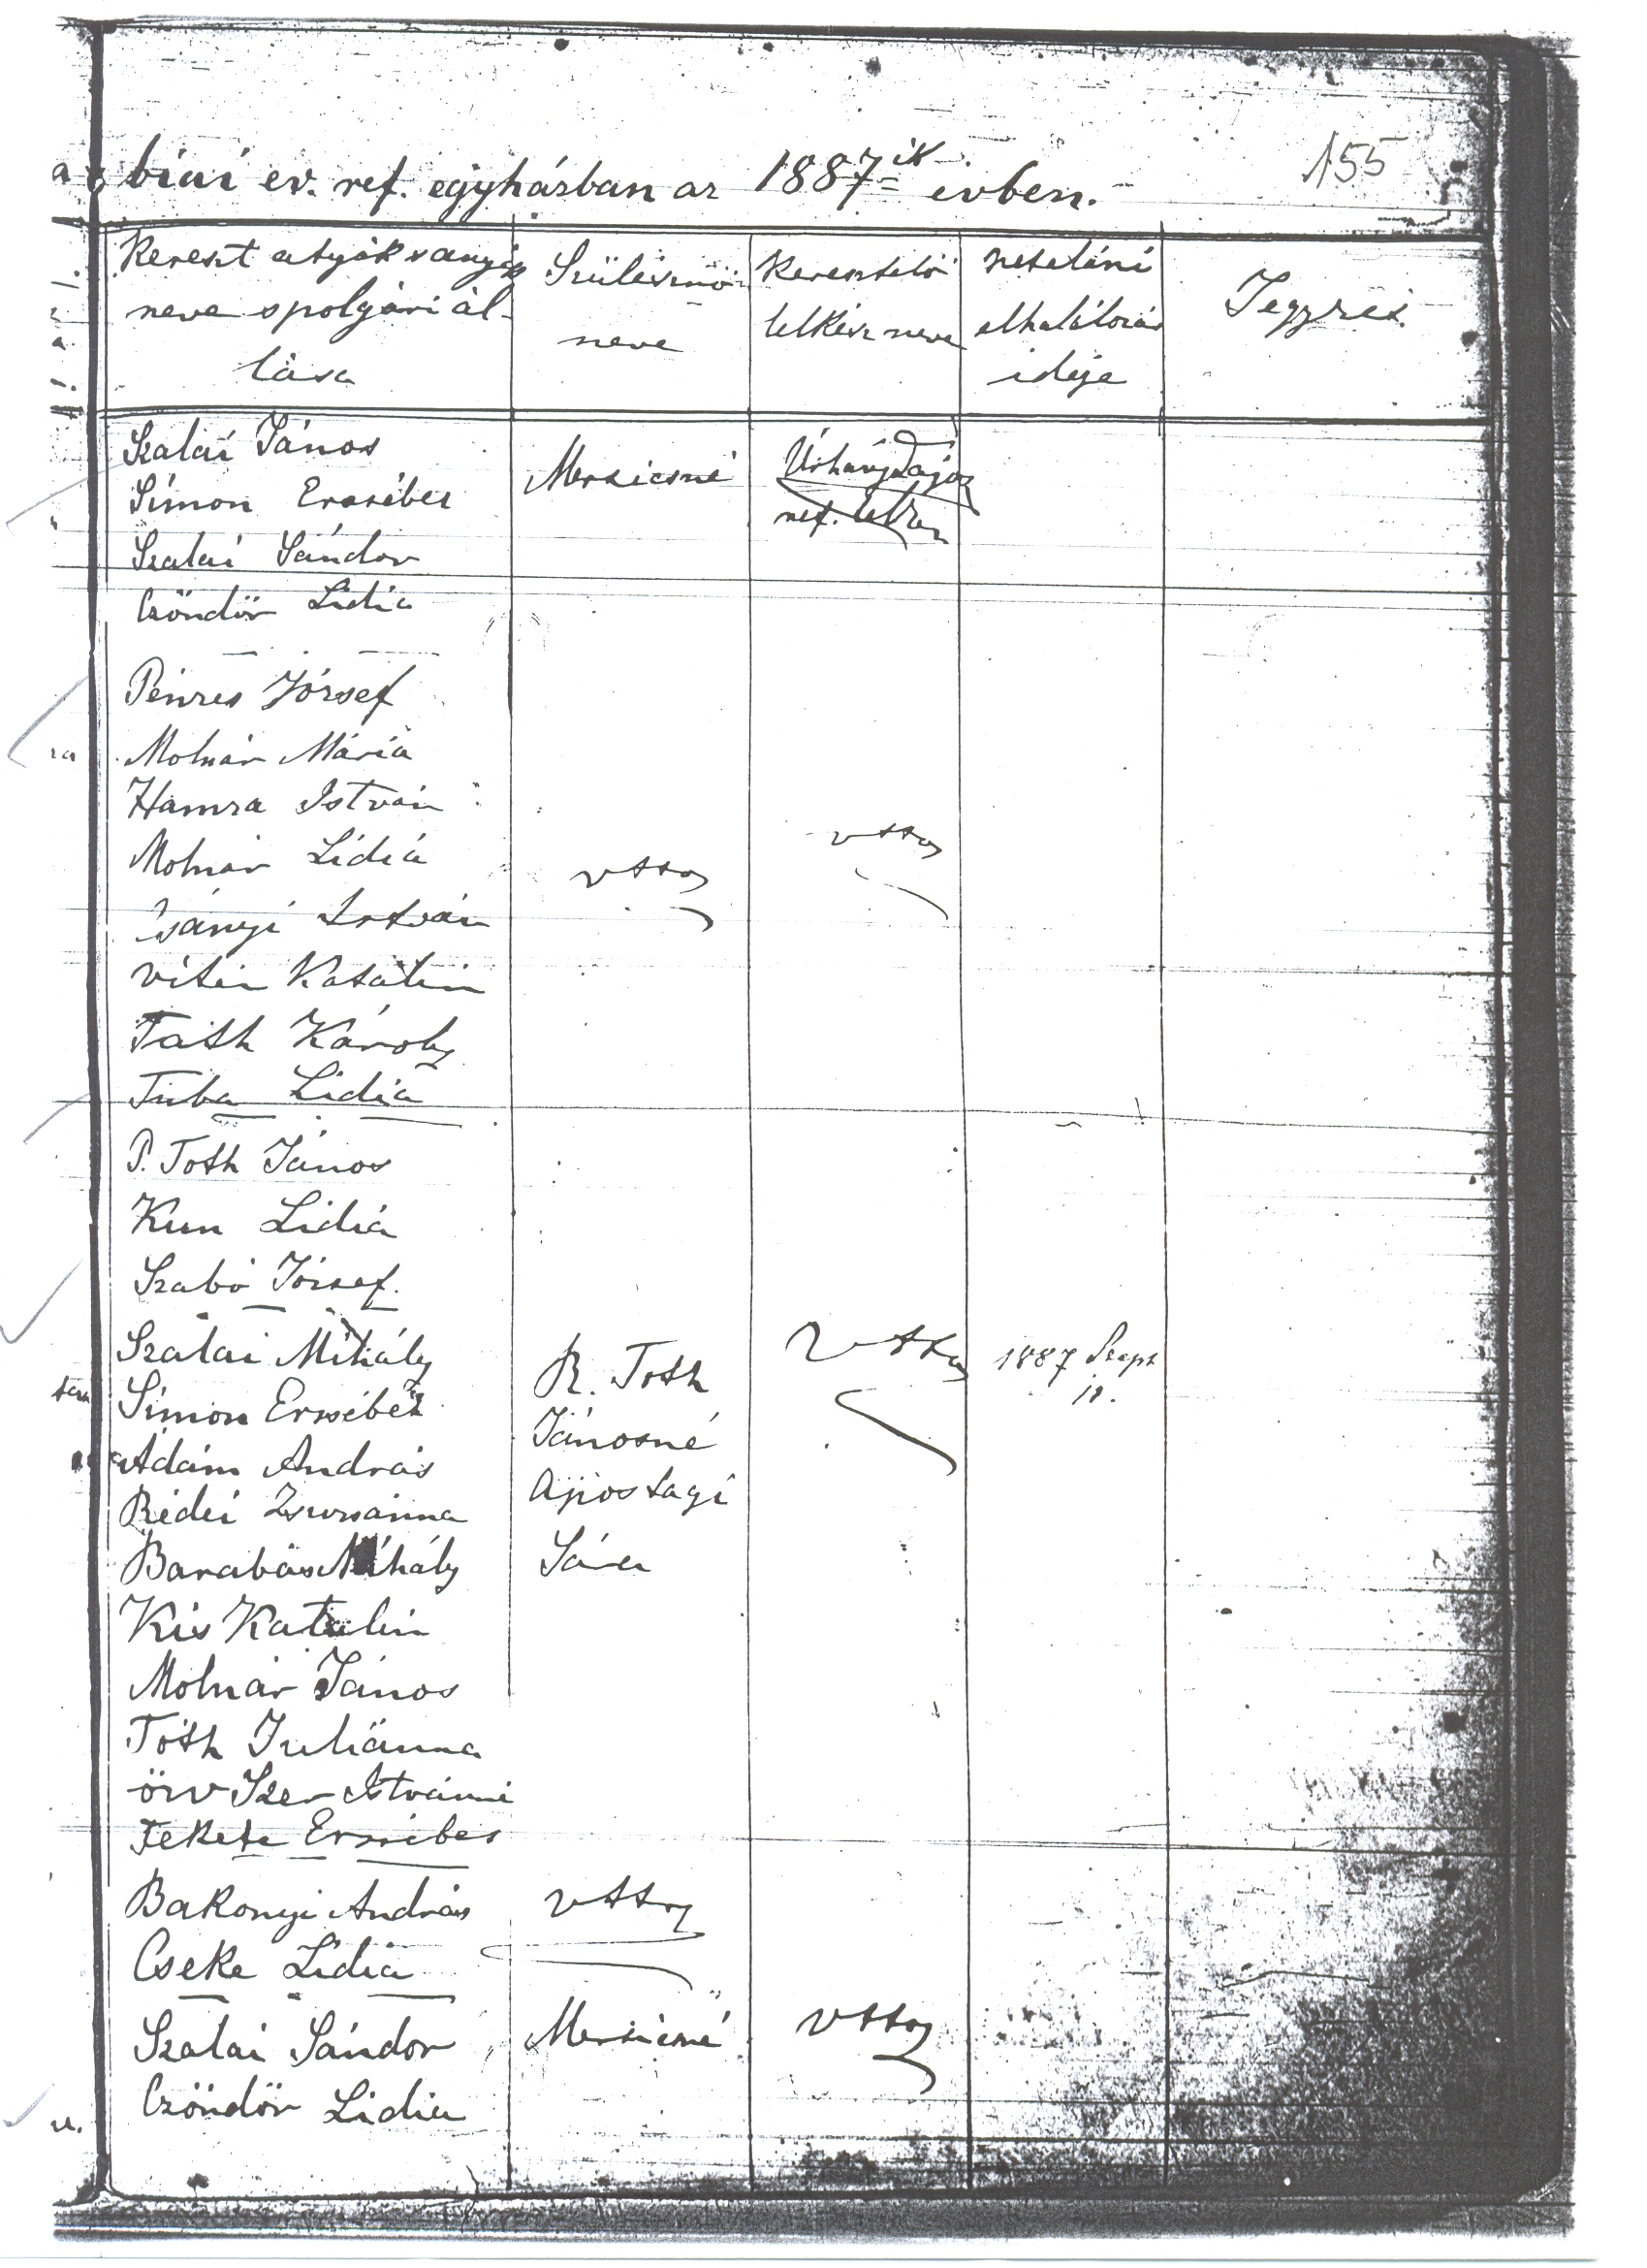 155
a bíni ev. ref. egyházban az 1887-ik évben.
Kereszt atyák s anyák
neve s polgári ál-
lása
Szülésznő
neve
Keresztelő
lelkész neve
netaláni
elhalálozás
idője
Jegyzés.
Szalai János
Simon Erzsébet
Szalai Sándor
Czöndör Lidia
Merzicsné
ref. lelkész
Pénzes József
Molnár Mária
Hamza István
Molnár Lídia
Csányi István
Vitéz Katalin
Tóth Károly
Tuba Lidia
P. Toth János
Kun Lidia
Szabó József.
Szalai Mihály
Simon Erzsébet
Ádám András
Rédei Zsuzsánna
Barabás Mihály
Kis Katalin
Molnár János
Tóth Juliánna
özv Szer Istvánné
Fekete Erzsébet
R. Toth
Jánosné
Apostagi
Sára
1887 Szept
11.
Bakonyi András
Cseke Lidia
Szalai Sándor
Czöndör Lidia
Merzicsné